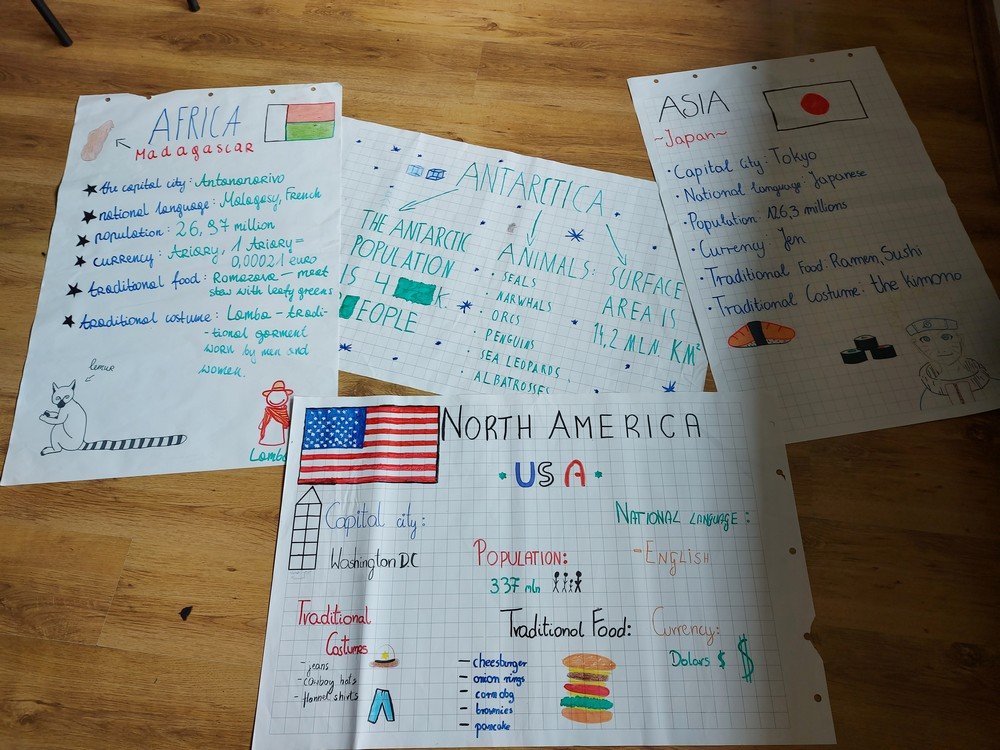 AFRICA
Madagascar
the capital city: Antananarivo
national language: Malagasy, French
population: 26,97 million
currency: Ariary, 1 Ariary =
0,00021 euro
traditional food: Romazava – meat
stew with leafy greens
traditional costume: Lamba – tradi-
-tional garment
worn by men and
women.
lemur
Lamba
ANTARCTICA
THE ANTARCTIC
POPULATION
IS 4 K.
PEOPLE
ANIMALS:
• SEALS
• NARWHALS
• ORCS
• PENGUINS
• SEA LEOPARDS
• ALBATROSSES
SURFACE
AREA IS
14,2 MLN. KM²
ASIA
~Japan~
• Capital city: Tokyo
• National language: Japanese
• Population: 126,3 millions
• Currency: Jen
• Traditional Food: Ramen, Sushi
• Traditional Costume: the kimono
NORTH AMERICA
• USA •
Capital city:
Washington DC
NATIONAL LANGUAGE:
- ENGLISH
POPULATION:
337 mln
Traditional
Costumes
- jeans
- cowboy hats
- flannel shirts
Traditional Food:
– cheesburger
– onion rings
– corn dog
– brownies
– pancake
Currency:
Dolars $ $